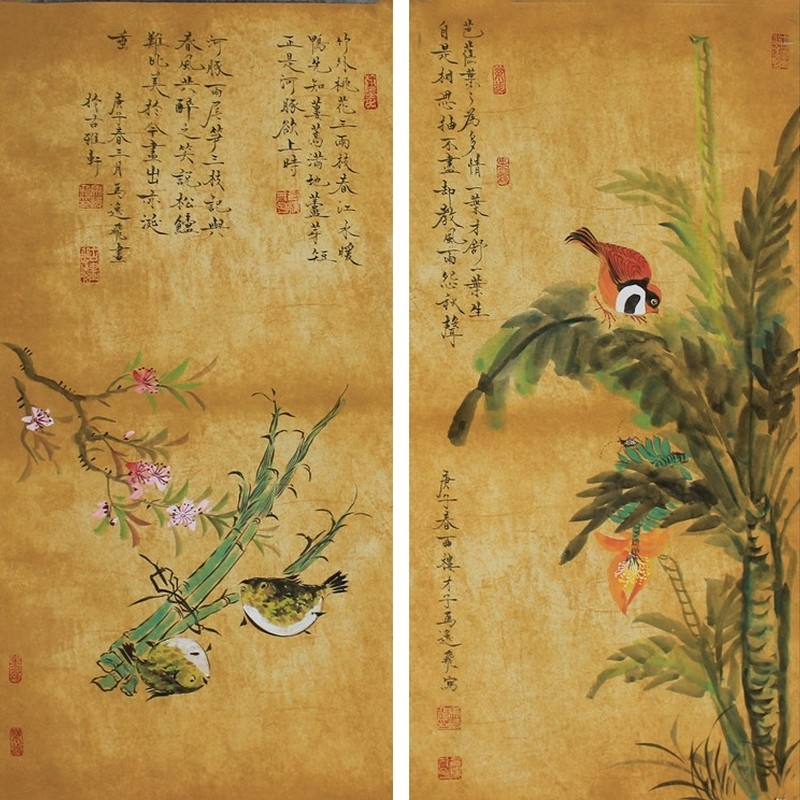 竹外桃花三兩枝春江水暖
鴨先知蔞蒿滿地蘆芽短
正是河豚欲上時
河豚兩尾笋三枝記與
春風共醉之笑說松鱸
難比美於今畫出亦涎
垂
庚午春三月馬逸飛畫
於古雅軒
芭蕉葉々為多情一葉才舒一葉生
自是相思抽不盡却教風雨怨秋聲
庚午春百樓才子馬逸飛寫